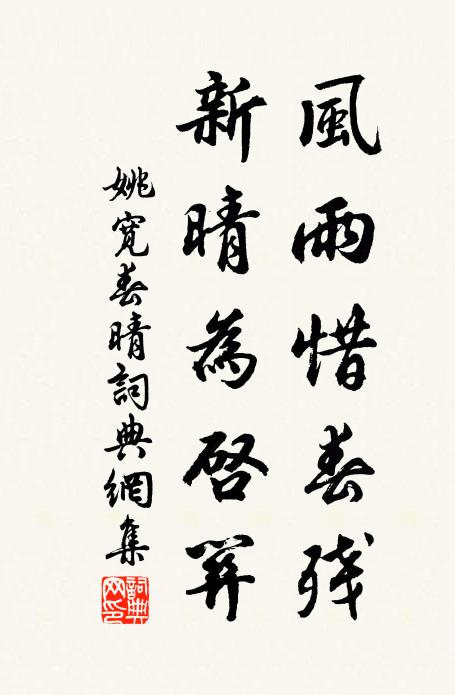 風雨惜春残
新晴為啓關
姚寬春晴詞典網集
詞典网印